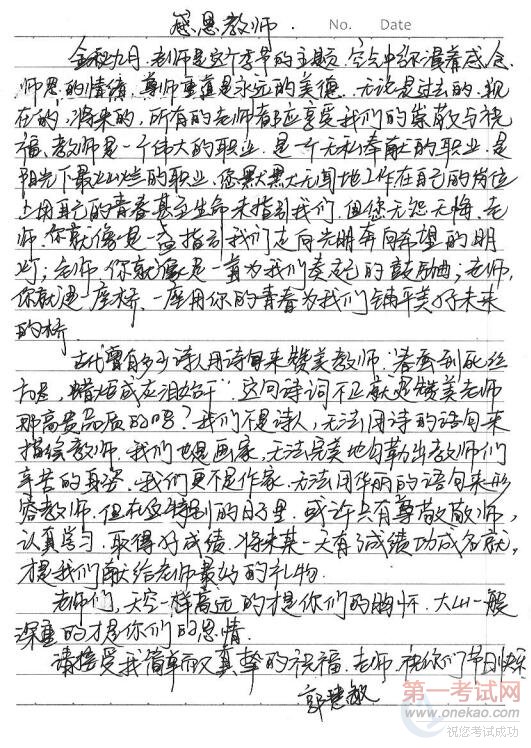 感恩教师.
No. Date
金秋九月,老师是这个季节的主题,空气中弥漫着感念
师恩的情绪,尊师重道是永远的美德,无论是过去的,现
在的,将来的,所有的老师都应享受我们的崇敬与祝
福,教师是一个伟大的职业,是一个无私奉献的职业,是
阳光下最灿烂的职业,您默默无闻地工作在自己的岗位
上用自己的青春甚至生命来指引我们,但您无怨无悔,老
师,你就像是一盏指引我们走向光明奔向希望的明
灯;老师,你就像是一首为我们奏起的鼓励曲;老师,
你就是一座桥,一座用你的青春为我们铺平美好未来
的桥.
古代曾有多少诗人用诗句来赞美教师,"春蚕到死丝
方尽,蜡炬成灰泪始干"这句诗词不正就是赞美老师
那高贵品质的吗?我们不是诗人,无法用诗的语句来
描绘教师,我们也是画家,无法完美地勾勒出教师们
辛苦的身姿,我们更不是作家,无法用华丽的语句来形
容教师,但在这特别的日子里,或许只有尊敬教师,
认真学习,取得好成绩,将来某一天有了成绩功成名就,
才是我们献给老师最好的礼物.
老师们,天空一样高远的才是你们的胸怀,大山一般
深重的才是你们的恩情.
请接受我简单而又真挚的祝福,老师,祝你们节日快乐
郭慧敏
第一考试网
www.onekao.com
祝您考试成功